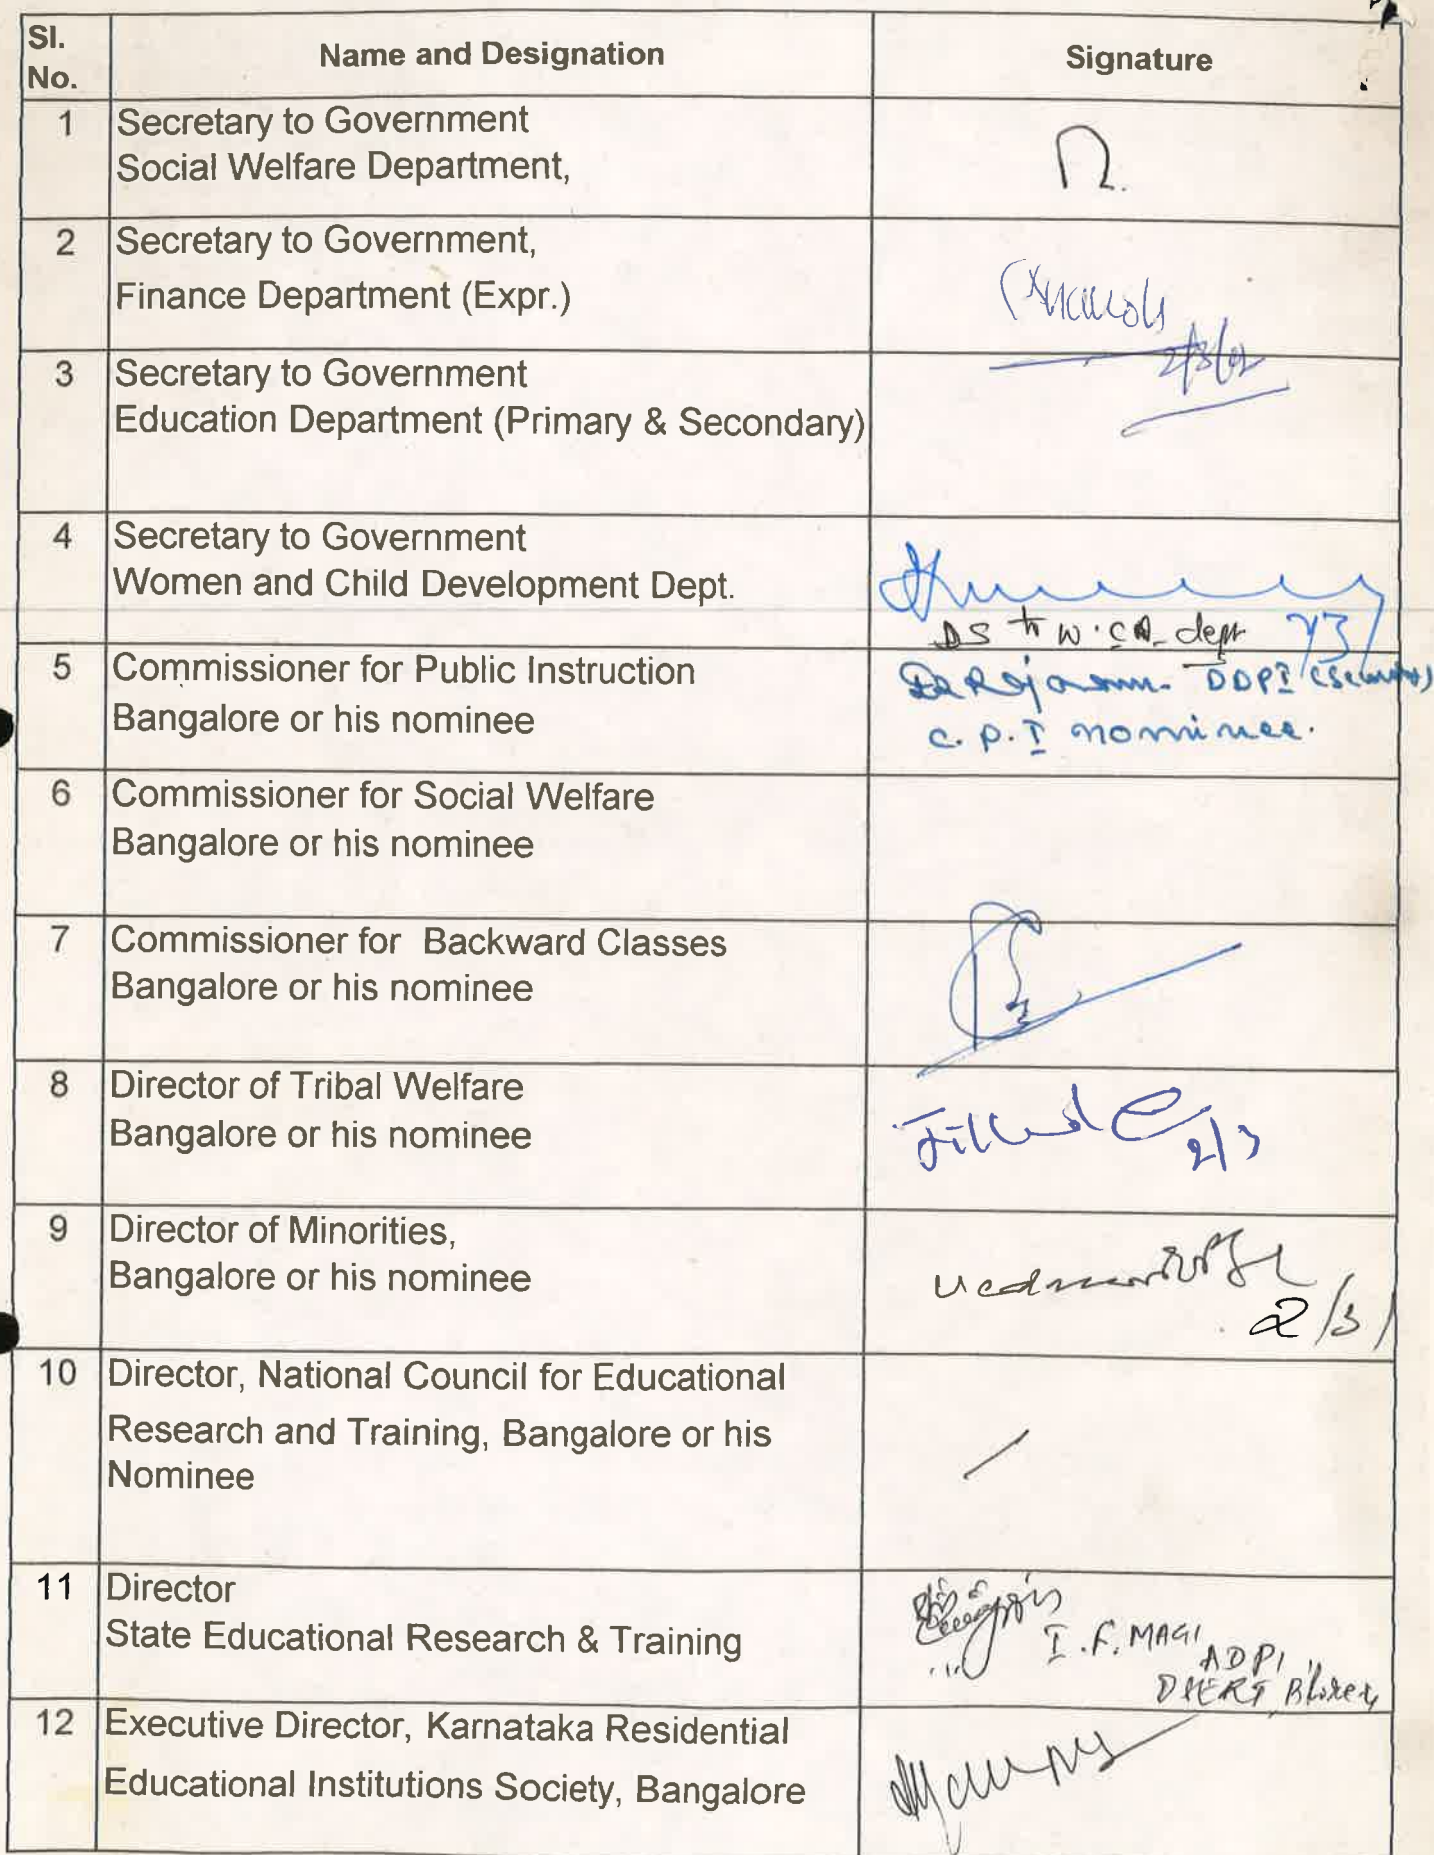 Sl.
No.
Name and Designation
Signature
1
Secretary to Government
Social Welfare Department,
2
Secretary to Government,
Finance Department (Expr.)
2/3/02
3
Secretary to Government
Education Department (Primary & Secondary)
4
Secretary to Government
Women and Child Development Dept.
DS to W. CD dept
5
Commissioner for Public Instruction
Bangalore or his nominee
DDPI
C. P. I nominee.
6
Commissioner for Social Welfare
Bangalore or his nominee
7
Commissioner for Backward Classes
Bangalore or his nominee
8
Director of Tribal Welfare
Bangalore or his nominee
2/3
9
Director of Minorities,
Bangalore or his nominee
2/3/
10
Director, National Council for Educational
Research and Training, Bangalore or his
Nominee
11
Director
State Educational Research & Training
I. F. MAGI
ADPI
DSERT, B'lore
12
Executive Director, Karnataka Residential
Educational Institutions Society, Bangalore